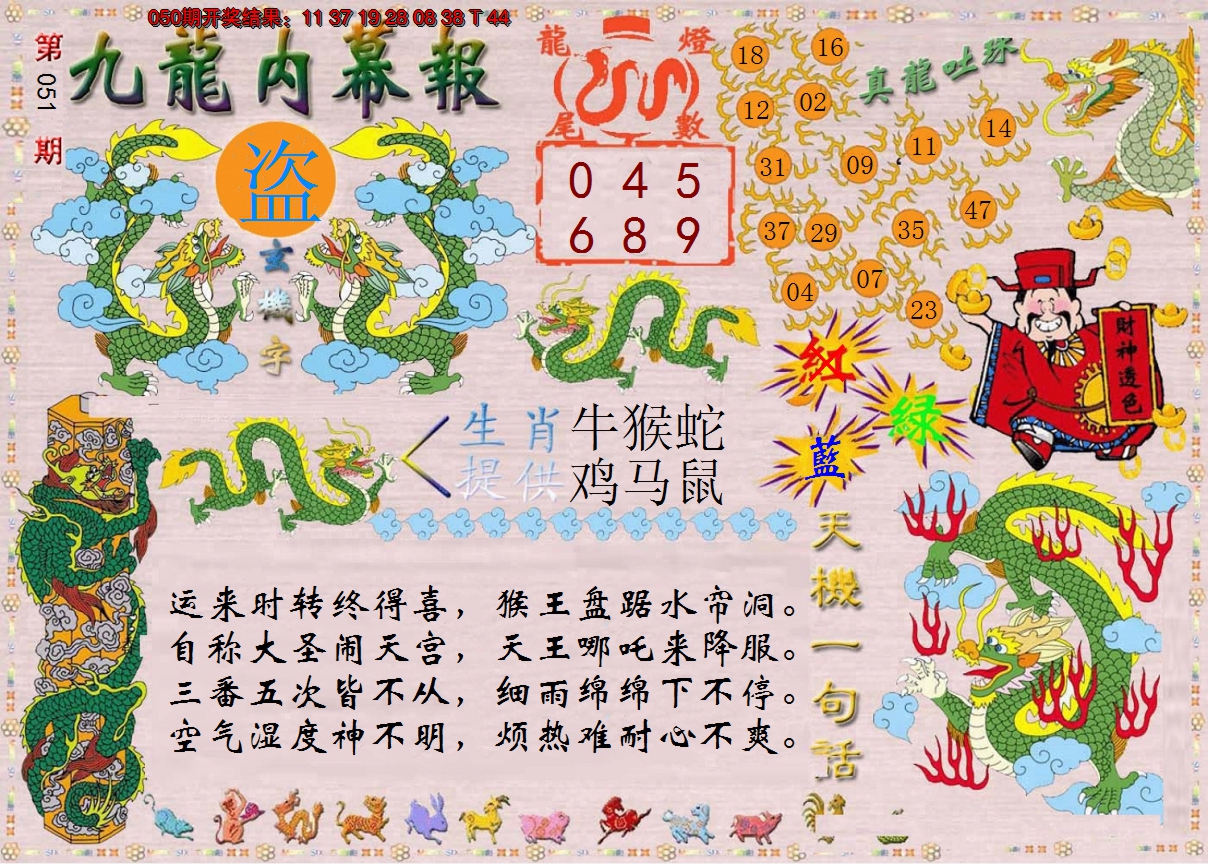 050期开奖结果：11 37 19 28 08 38 T 44
第051期
九龍内幕報
盗
玄機字
龍燈尾數
0 4 5
6 8 9
真龍吐珠
18 16
12 02
11 14
31 09
47
37 29 35
07
04 23
財神透色
紅
綠
藍
生肖 牛猴蛇
提供 鸡马鼠
天機一句話
运来时转终得喜，猴王盘踞水帘洞。
自称大圣闹天宫，天王哪吒来降服。
三番五次皆不从，细雨绵绵下不停。
空气湿度神不明，烦热难耐心不爽。